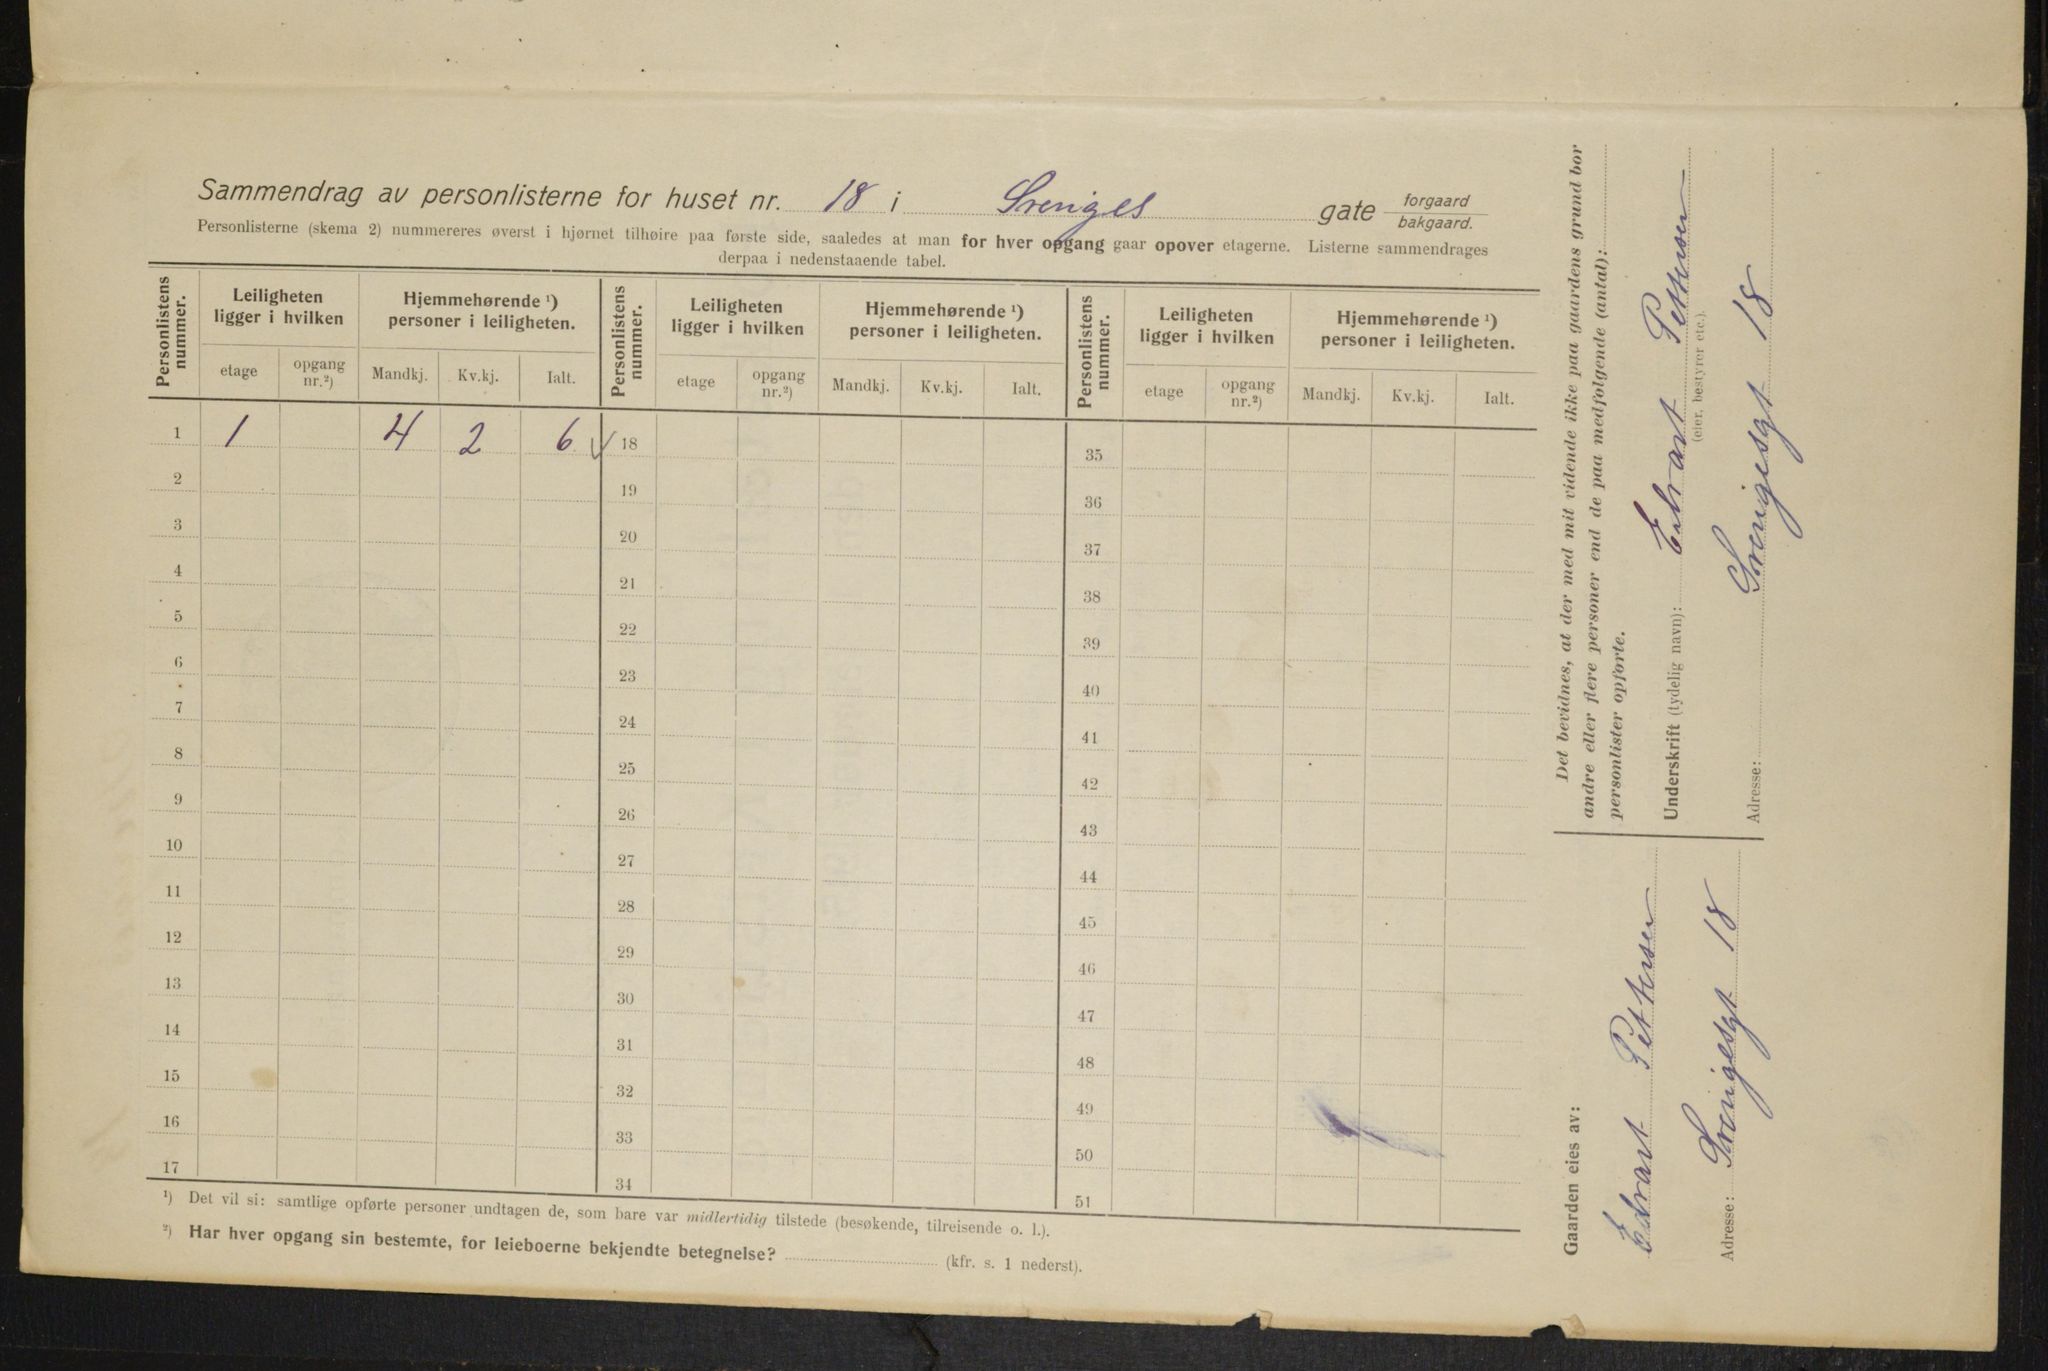 Sammendrag av personlisterne for huset nr. 18 i Sveriges gate forgaard
bakgaard.
Personlisterne (skema 2) nummereres øverst i hjørnet tilhøire paa første side, saaledes at man for hver opgang gaar opover etagerne. Listerne sammendrages
derpaa i nedenstaaende tabel.
Personlistens nummer. Leiligheten ligger i hvilken Hjemmehørende ¹) personer i leiligheten. Personlistens nummer. Leiligheten ligger i hvilken Hjemmehørende ¹) personer i leiligheten. Personlistens nummer. Leiligheten ligger i hvilken Hjemmehørende ¹) personer i leiligheten.
etage opgang nr.²) Mandkj. Kv.kj. Ialt. etage opgang nr.²) Mandkj. Kv.kj. Ialt. etage opgang nr.²) Mandkj. Kv.kj. Ialt.
1 1 4 2 6 18 35
2 19 36
3 20 37
4 21 38
5 22 39
6 23 40
7 24 41
8 25 42
9 26 43
10 27 44
11 28 45
12 29 46
13 30 47
14 31 48
15 32 49
16 33 50
17 34 51
¹) Det vil si: samtlige opførte personer undtagen de, som bare var midlertidig tilstede (besøkende, tilreisende o. l.).
²) Har hver opgang sin bestemte, for leieboerne bekjendte betegnelse? (kfr. s. 1 nederst).
Gaarden eies av:
Edvart Pettersen
Adresse: Sverigesgt 18
Det bevidnes, at der med mit vidende ikke paa gaardens grund bor
andre eller flere personer end de paa medfølgende (antal):
personlister opførte.
Underskrift (tydelig navn): Edvart Pettersen
(eier, bestyrer etc.).
Adresse: Sverigesgt 18